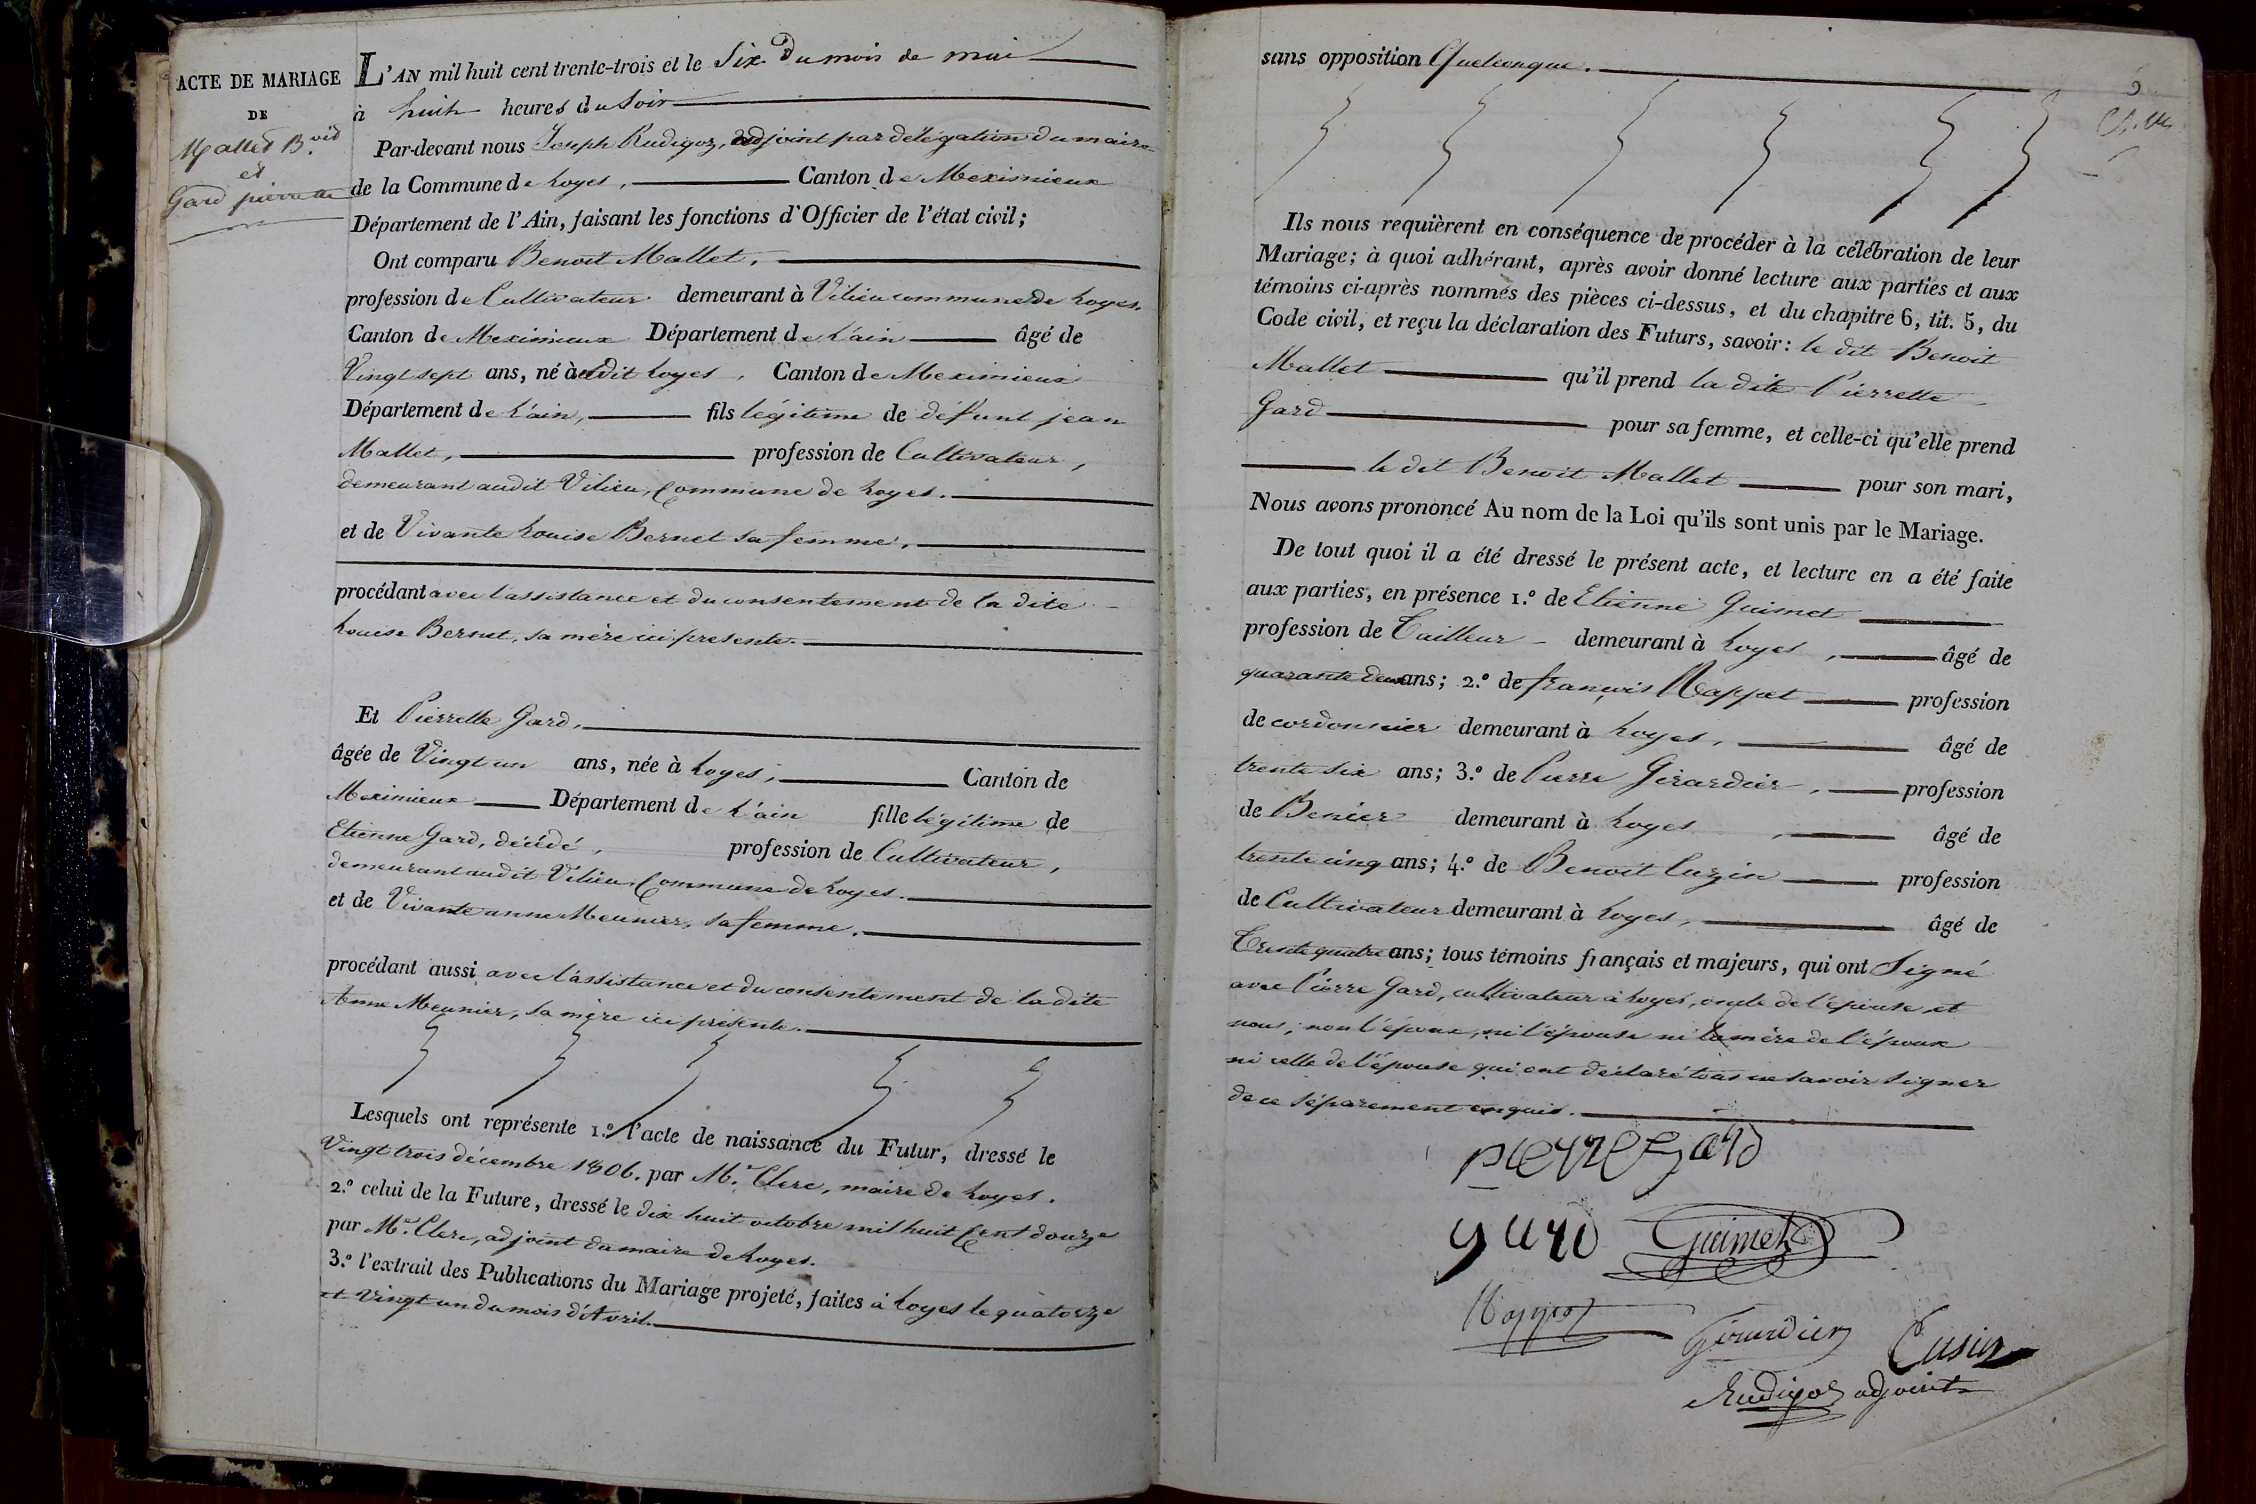 ACTE DE MARIAGE
DE
Mallet B.oit
et
Gard pierrette
L'AN mil huit cent trente-trois et le Six Du mois de mai
à huit heures du Soir
Par-devant nous Joseph Rudigoz, adjoint par délégation du maire
de la Commune de Loyes, Canton de Meximieux
Département de l'Ain, faisant les fonctions d'Officier de l'état civil;
Ont comparu Benoit Mallet,
profession de Cultivateur demeurant à Vilieu commune de Loyes.
Canton de Meximieux Département de L'ain âgé de
Vingt sept ans, né audit Loyes, Canton de Meximieux
Département de L'ain, fils légitime de défunt jean
Mallet, profession de Cultivateur,
demeurant audit Vilieu, Commune de Loyes.
et de Vivante Louise Bernet sa femme,
procédant avec l'assistance et du consentement de la dite
Louise Bernet, sa mère ici présente.
Et Pierrette Gard,
âgée de Vingt un ans, née à Loyes, Canton de
Meximieux Département de L'ain fille légitime de
Etienne Gard, décédé, profession de Cultivateur,
demeurant audit Vilieu, Commune de Loyes.
et de Vivante anne Meunier, sa femme.
procédant aussi avec l'assistance et du consentement de la dite
Anne Meunier, sa mère ici présente.
Lesquels ont représenté 1.º l'acte de naissance du Futur, dressé le
Vingt trois décembre 1806. par Mr. Clerc, maire de Loyes.
2.º celui de la Future, dressé le dix huit octobre mil huit Cent douze
par Mr. Clerc, adjoint du maire de Loyes.
3.º l'extrait des Publications du Mariage projeté, faites à Loyes le quatorze
et Vingt un du mois d'Avril.
sans opposition Quelconque.
Ils nous requièrent en conséquence de procéder à la célébration de leur
Mariage; à quoi adhérant, après avoir donné lecture aux parties et aux
témoins ci-après nommés des pièces ci-dessus, et du chapitre 6, tit. 5, du
Code civil, et reçu la déclaration des Futurs, savoir: le dit Benoit
Mallet qu'il prend la dite Pierrette
Gard pour sa femme, et celle-ci qu'elle prend
le dit Benoit Mallet pour son mari,
Nous avons prononcé Au nom de la Loi qu'ils sont unis par le Mariage.
De tout quoi il a été dressé le présent acte, et lecture en a été faite
aux parties, en présence 1.º de Etienne Guimet
profession de Tailleur demeurant à Loyes, âgé de
quarante deux ans; 2.º de françois Nappet profession
de cordonnier demeurant à Loyes, âgé de
trente six ans; 3.º de Pierre Girardier, profession
de demeurant à Loyes, âgé de
trente cinq ans; 4.º de Benoit Cuzin profession
de Cultivateur demeurant à Loyes, âgé de
Trente quatre ans; tous témoins français et majeurs, qui ont Signé
avec Pierre Gard, cultivateur à Loyes, oncle de l'épouse, et
nous, non l'époux, ni l'épouse ni la mère de l'époux
ni celle de l'épouse qui ont déclaré tous ne savoir signer
de ce séparement enquis.
pierre gard
gard Guimet
Nappet Girardier Cusin
Rudigoz adjoint